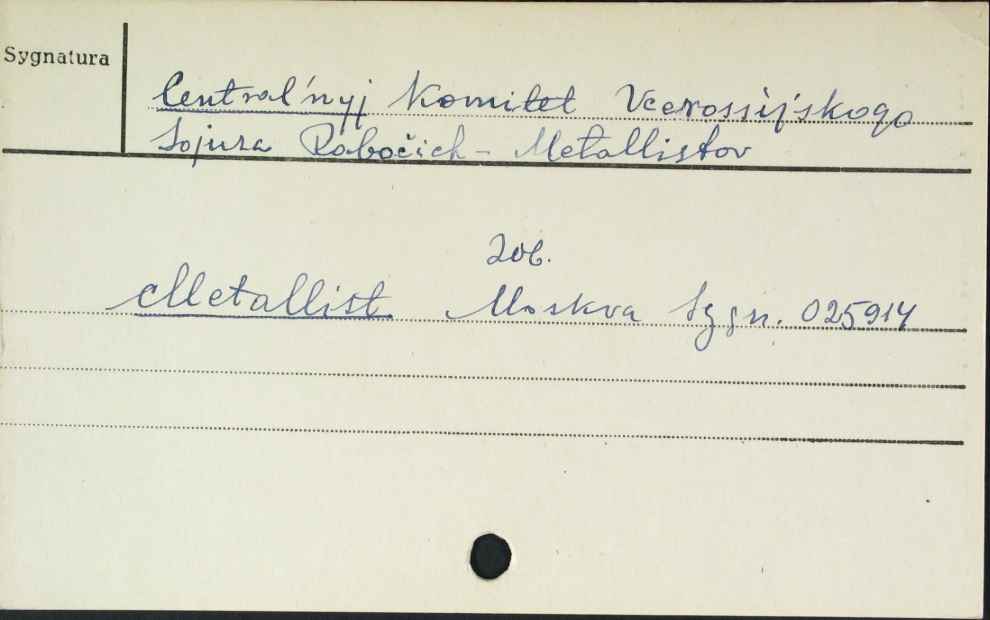 Sygnatura
Central'nyj Komitet Vserossijskogo
Sojuza Rabočich - Metallistov
Zob.
Metallist. Moskva Sygn. 025914